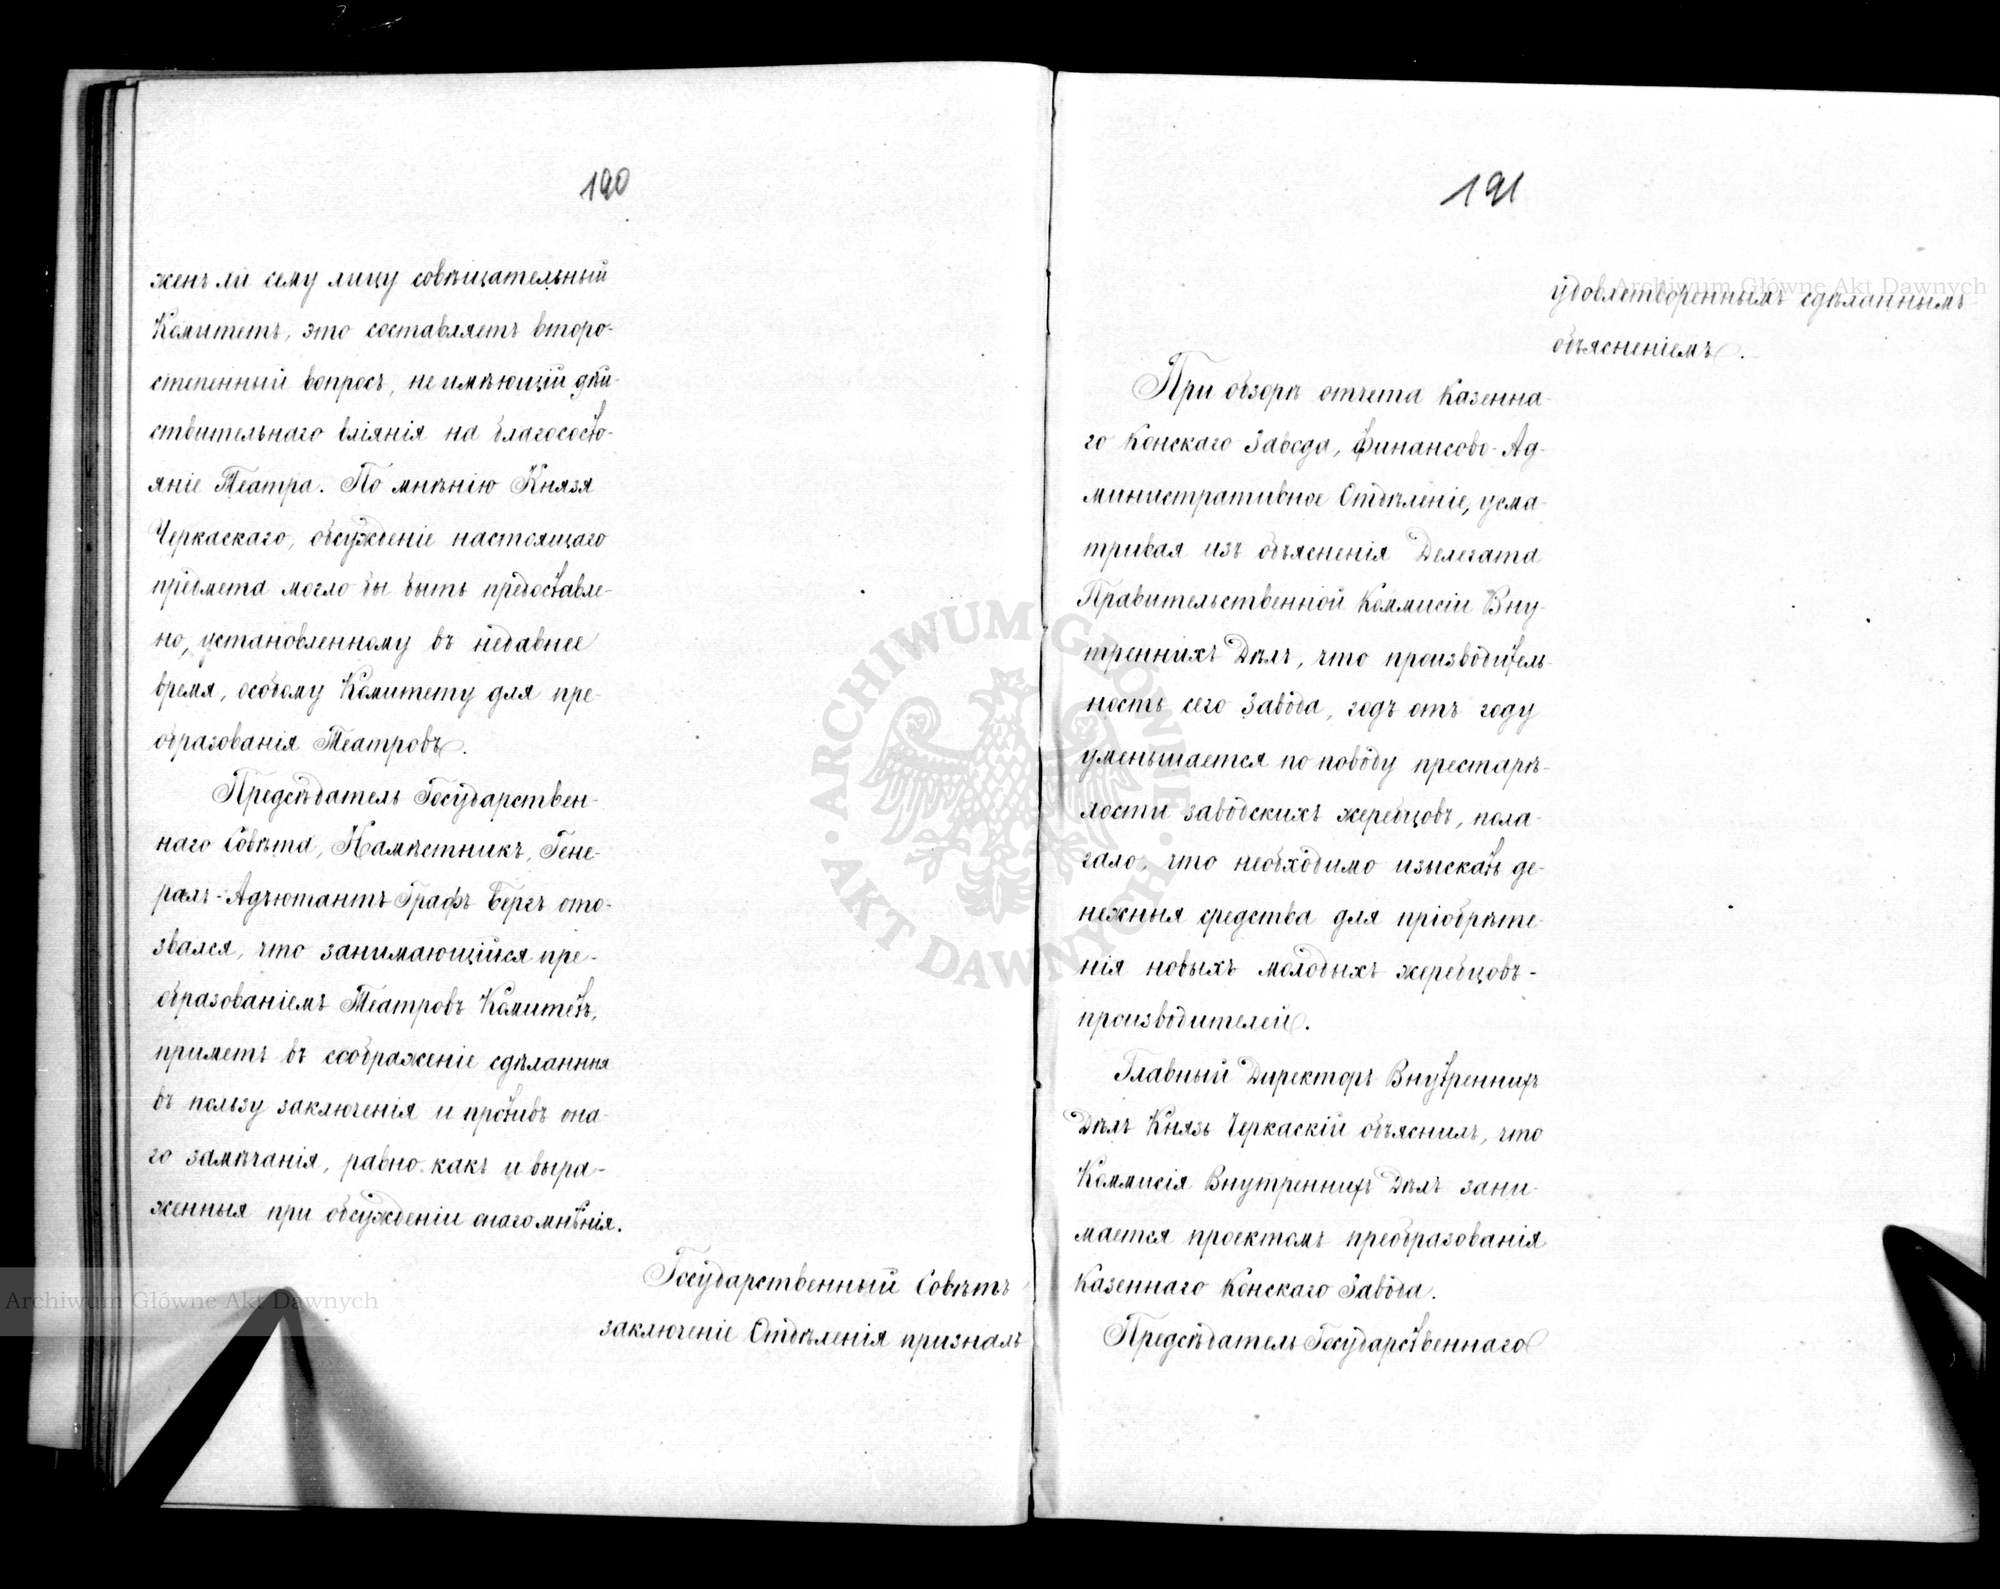 190
женъ ли сему лицу совѣщательный
Комитетъ, это составляетъ второ-
степенный вопросъ, не имѣющій дѣй-
ствительнаго вліянія на благососто-
яніе Театра. По мнѣнію Князя
Черкаскаго, обсужденіе настоящаго
предмета могло бы быть предоставле-
но, установленному въ недавнее
время, особому Комитету для пре-
образованія Театровъ.
Предсѣдатель Государствен-
наго Совѣта, Намѣстникъ, Гене-
ралъ-Адъютантъ Графъ Бергъ ото-
звался, что занимающійся пре-
образованіемъ Театровъ Комитетъ,
приметъ въ соображеніе сдѣланныя
въ пользу заключенія и противъ она-
го замѣчанія, равно какъ и выра-
женныя при обсужденіи онаго мнѣнія.
Государственный Совѣтъ
заключеніе Отдѣленія призналъ
191
удовлетвореннымъ сдѣланнымъ
объясненіемъ.
При обзорѣ отчета Казенна-
го Конскаго Завода, Финансово-Ад-
министративное Отдѣленіе, усма-
тривая изъ объясненія Делегата
Правительственной Коммисіи Вну-
треннихъ Дѣлъ, что производитель-
ность сего Завода, годъ отъ году
уменьшается по поводу престарѣ-
лости заводскихъ жеребцовъ, пола-
гало, что необходимо изыскать де-
нежныя средства для пріобрѣте-
нія новыхъ молодыхъ жеребцовъ-
производителей.
Главный Директоръ Внутреннихъ
Дѣлъ Князь Черкаскій объяснилъ, что
Коммисія Внутреннихъ Дѣлъ зани-
мается проектомъ преобразованія
Казеннаго Конскаго Завода.
Предсѣдатель Государственнаго
Archiwum Główne Akt Dawnych
Archiwum Główne Akt Dawnych
ARCHIWUM GŁÓWNE · AKT DAWNYCH ·